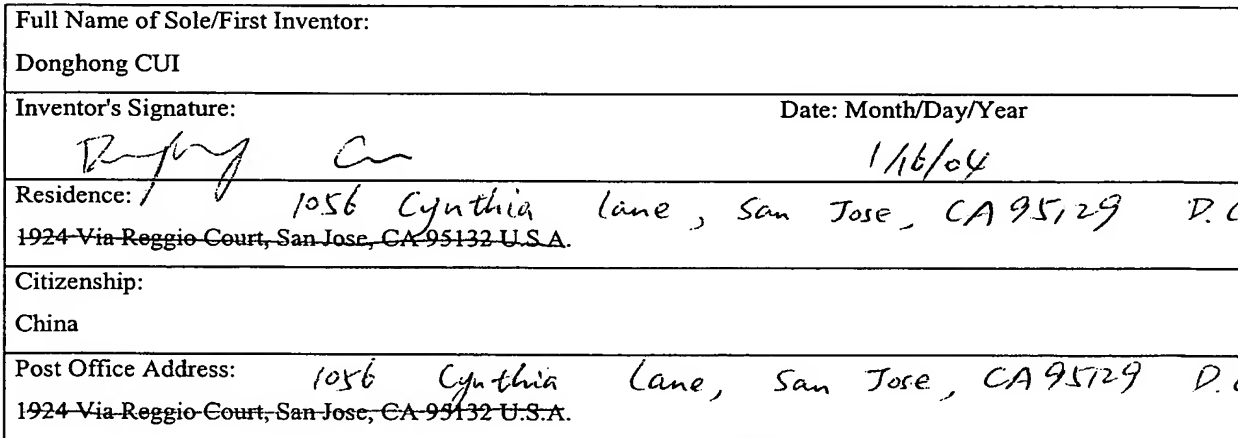 Full Name of Sole/First Inventor:
Donghong CUI
Inventor's Signature: Date: Month/Day/Year
1/16/04
Residence: 1056 Cynthia Lane, San Jose, CA 95129 D.C
1924 Via Reggio Court, San Jose, CA 95132 U.S.A.
Citizenship:
China
Post Office Address: 1056 Cynthia Lane, San Jose, CA 95129 D.C
1924 Via Reggio Court, San Jose, CA 95132 U.S.A.